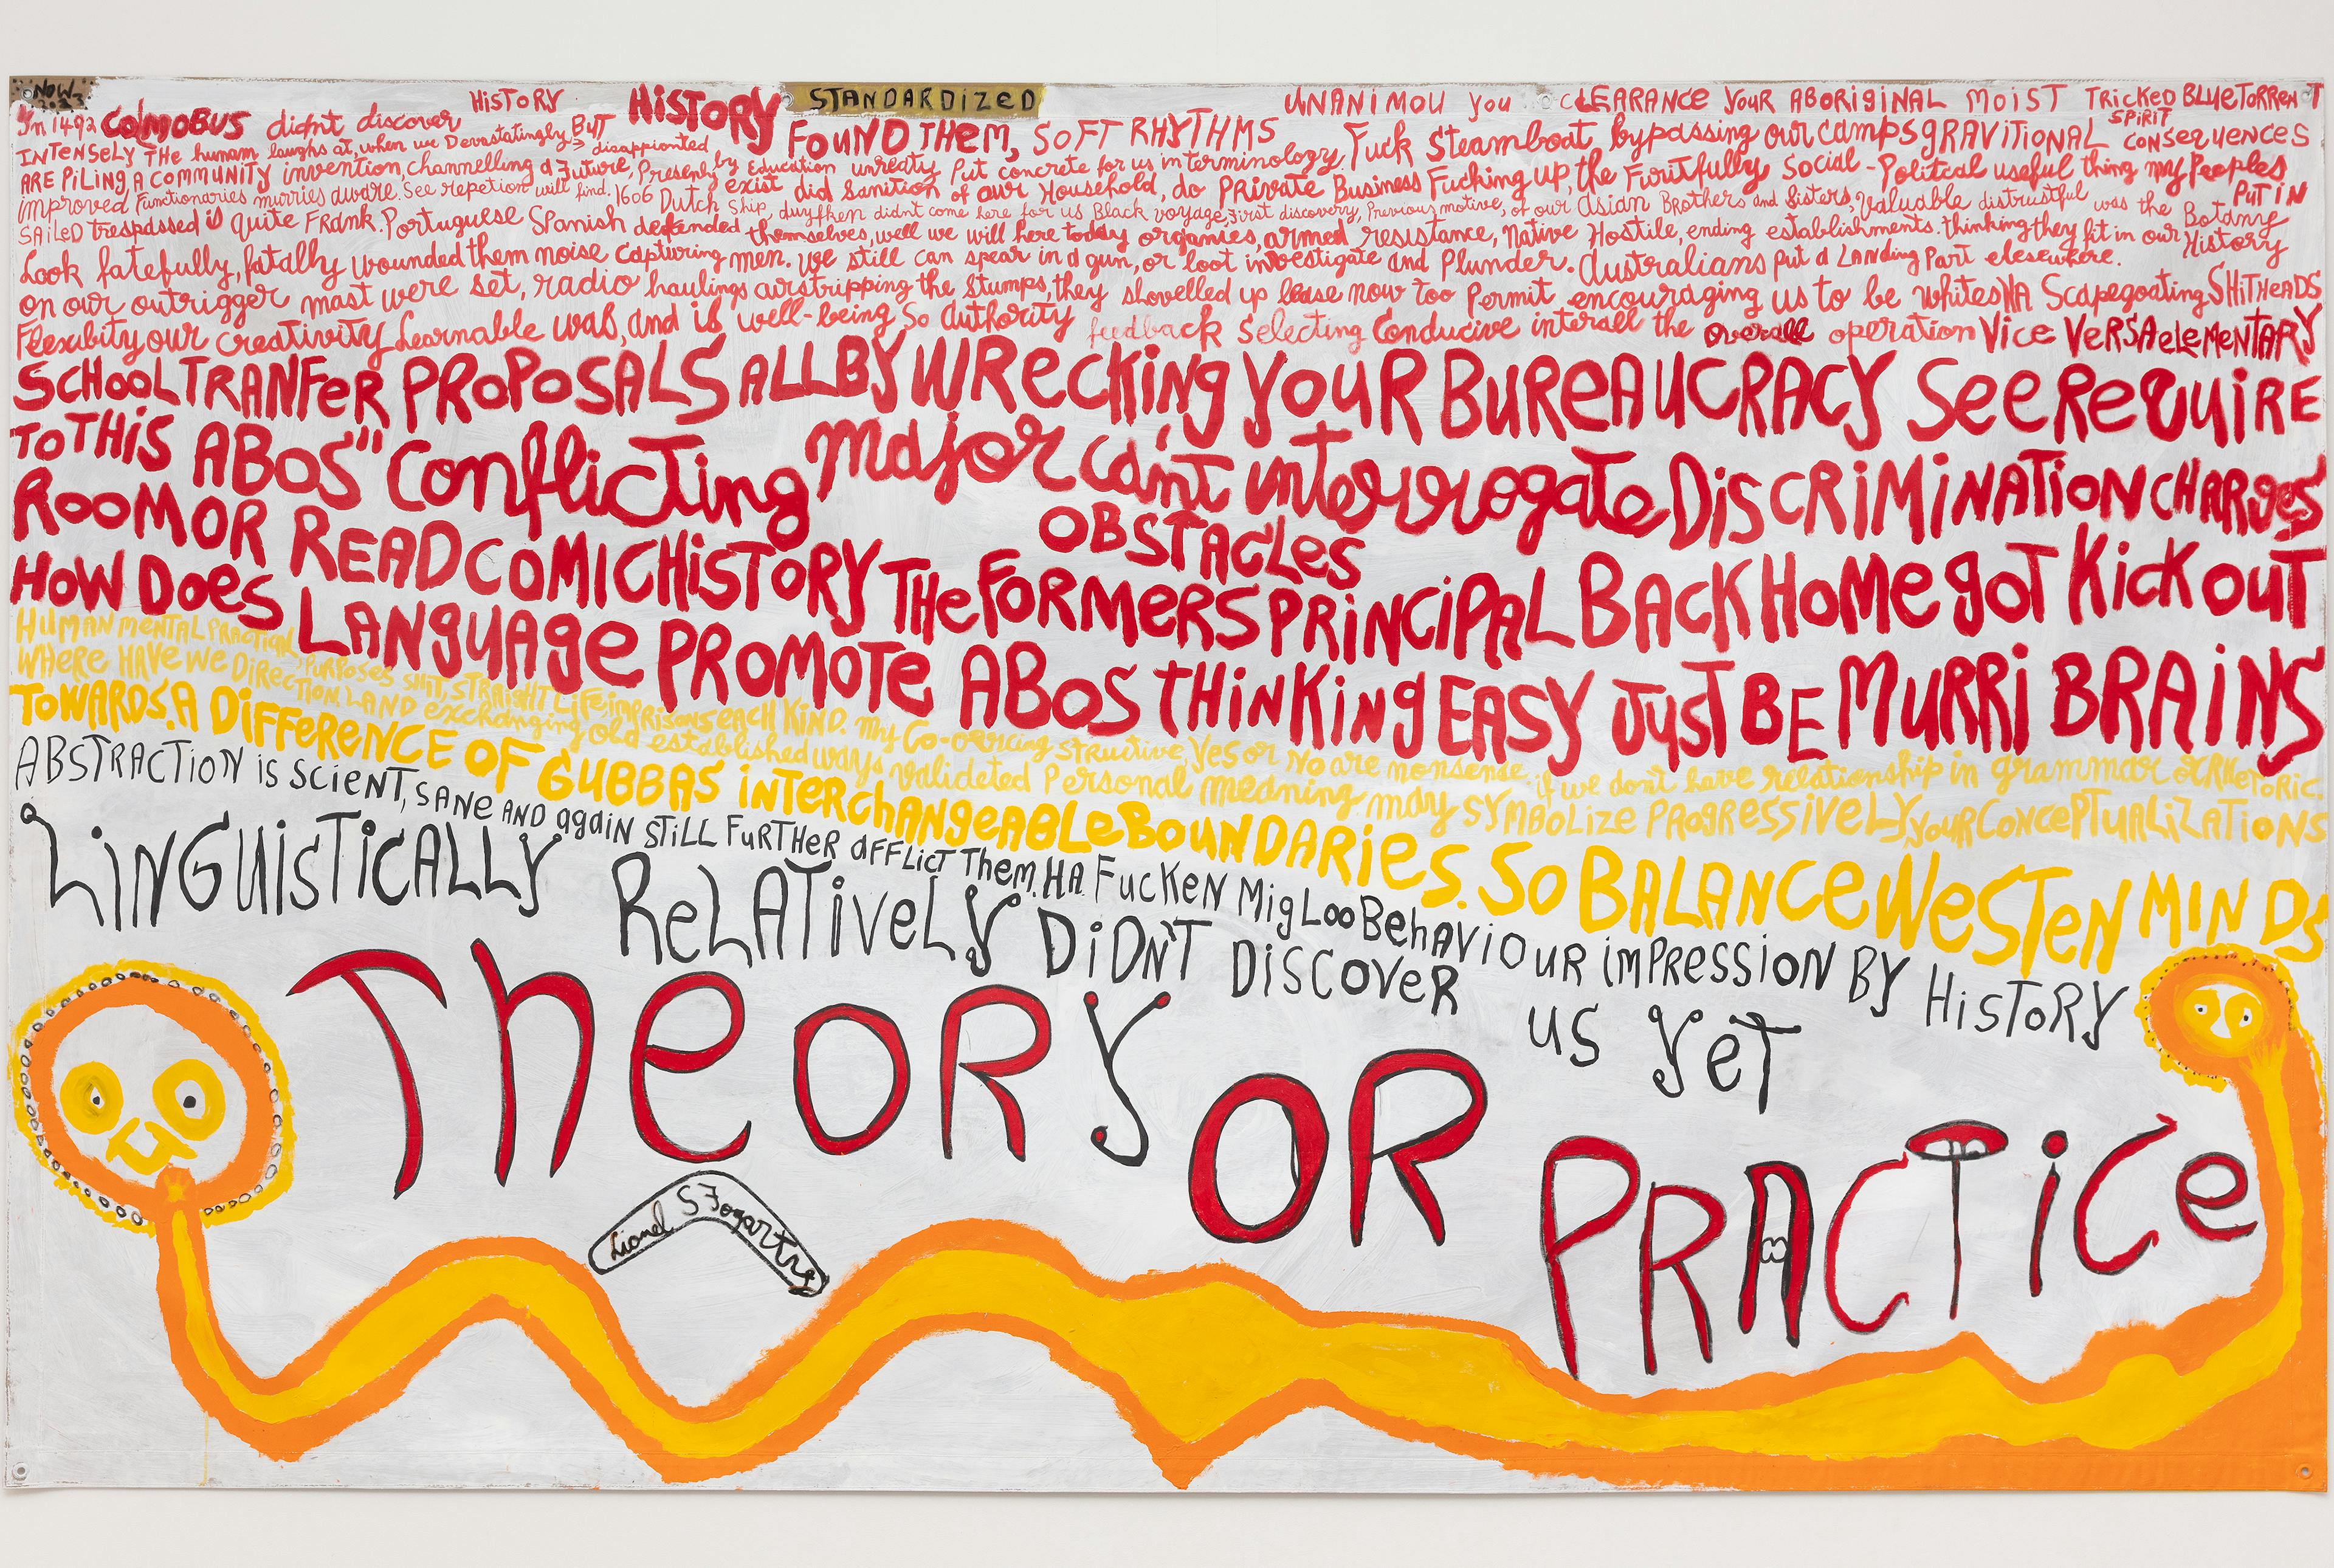 NOW 2023
STANDARDIZED
In 1492 COLMOBUS didnt discover HISTORY BUT HISTORY FOUND THEM, SOFT RHYTHMS UNANIMOU you CLEARANCE YOUR ABORIGINAL MOIST TRICKED BLUE TORRENT SPIRIT
INTENSELY THE humam laughs at, when we Devastatingly disappionted
ARE PILING, A COMMUNITY invention, channelling a Future, Presenly by Education unreaty Put concrete for us in terminology, Fuck Steamboat bypassing our camps GRAVITIONAL CONSEQUENCES
improved Functionaries murries aware. See repetion will find, 1606 Dutch Ship, duyfken didnt come here for us Black voyage, First discovery, Previous motive, of our Asian Brothers and Sisters, Valuable distrustful was the Botany
exist did Sanition of our Household, do Private Business Fucking up, the Fruitfully Social - Politcal useful thing my Peoples PUT IN
SAiLeD trespassed is quite FRANK. Portuguese Spanish defended themselves, well we will here today organies, armed resistance, Native Hostile, ending establishments. thinking they fit in our History
Look fatefully, fatally wounded them noise capturing men. We still can spear in a gun, or loot investigate and Plunder. Australians put a Landing Part elesewhere.
on our outrigger mast were set, radio haulings airstripping the Stumps, they shovelled up lease now too Permit encouraging us to be whites HA Scapegoating SHITHEADS
Flexibity our creativity Learnable was, and is well-being So Authority feedback Selecting Conducive interall the overall operation Vice VeRSA eLeMeNTARY
SCHOOL TRANFeR PROPOSALS ALL BY WRecKiNg YOUR BUReAUCRACY See ReQUiRE
TO THiS ABOS" Conflicting major can't interrogate DiSCRiMiNATiON CHARges
OBSTACLes
ROOM OR READ COMIC HiSTORY THe FORMeRS PRiNCiPAL BACK HOMe gOT KicK ouT
HOW DOeS LANguAge PROMOTe ABOS THiNKiNg EASY JusT BE MURRi BRAiNS
HUMAN MeNTAL PRACTicAL, PURPOSeS SHiT, STRAigHT LiFe, iMPRiSONS eACH KiND. My Co-oercing STRucTive, Yes or No are nonsense, if we don't have relationship in grammar OR RHeTORiC.
WHeRe HAVe We DiRecTiON, LAND exchanging old established ways valideted Personal meaning may SYMBOLiZe PROgReSSiveLY YOUR CONCePTUALiZATiONS
TOWARDS. A DiFFeReNCE OF GUBBAS iNTeRcHANgeABLe BOUNDARieS. SO BALANCe WeSTeN MiNDS
ABSTRACTiON iS SCieNT, SANe AND AgAiN STiLL FuRTHeR AFFLicT THem. HA FucKeN MigLoo BeHAViOUR iMPReSSiON BY HiSTORY
LiNGUiSTicALLY ReLATiveLY DiDN'T DiSCOVeR us YeT
THeORY OR PRACTice
Lionel S Fogarty